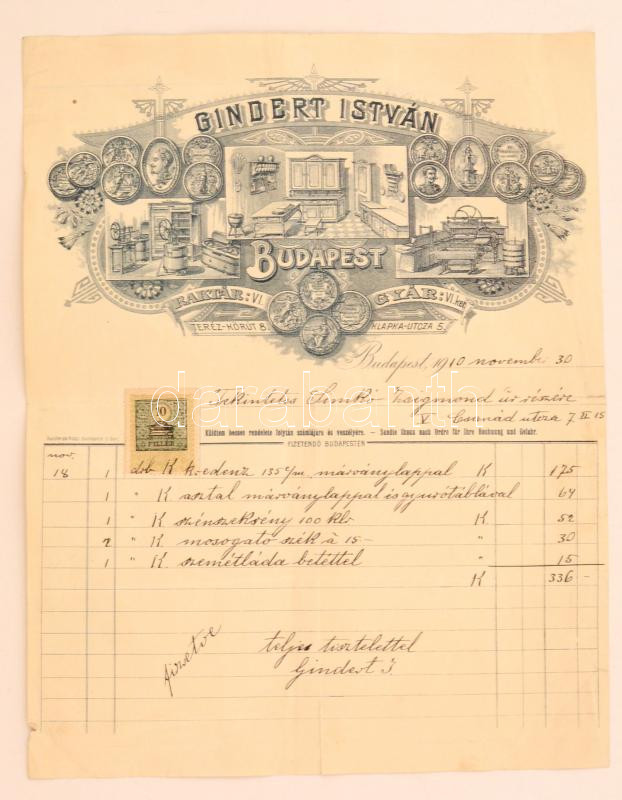 GINDERT ISTVÁN
BUDAPEST
RAKTÁR: VI. GYÁR: VI. ker.
TERÉZ-KÖRÚT 8. KLAPKA-UTCZA 5.
Budapest, 1910 november 30
Tekintetes Simkó Zsigmond úr részére
V Csanád utcza 7 II 15
Küldtem becses rendelete folytán számlájára és veszélyére. - Sandte Ihnen nach Ordre für Ihre Rechnung und Gefahr.
FIZETENDŐ BUDAPESTEN
FILLÉR
nov.
18 1 drb K kredenz 135 c/m márványlappal K 175
1 " K asztal márványlappal és gyurótáblával 64
1 " K szénszekrény 100 klr K 52
2 " K mosogató szék à 15- " 30
1 " K szemétláda betéttel " 15
K 336 -
fizetve
teljes tisztelettel
Gindert I.
darabanth